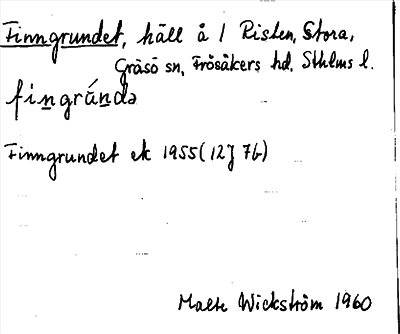 Finngrundet, häll å / Risten, Stora,
Gräsö sn, Frösåkers hd, Sthlms l.
fiṉgrúṉdə
Finngrundet ek 1955 (12J 7b)
Malte Wickström 1960